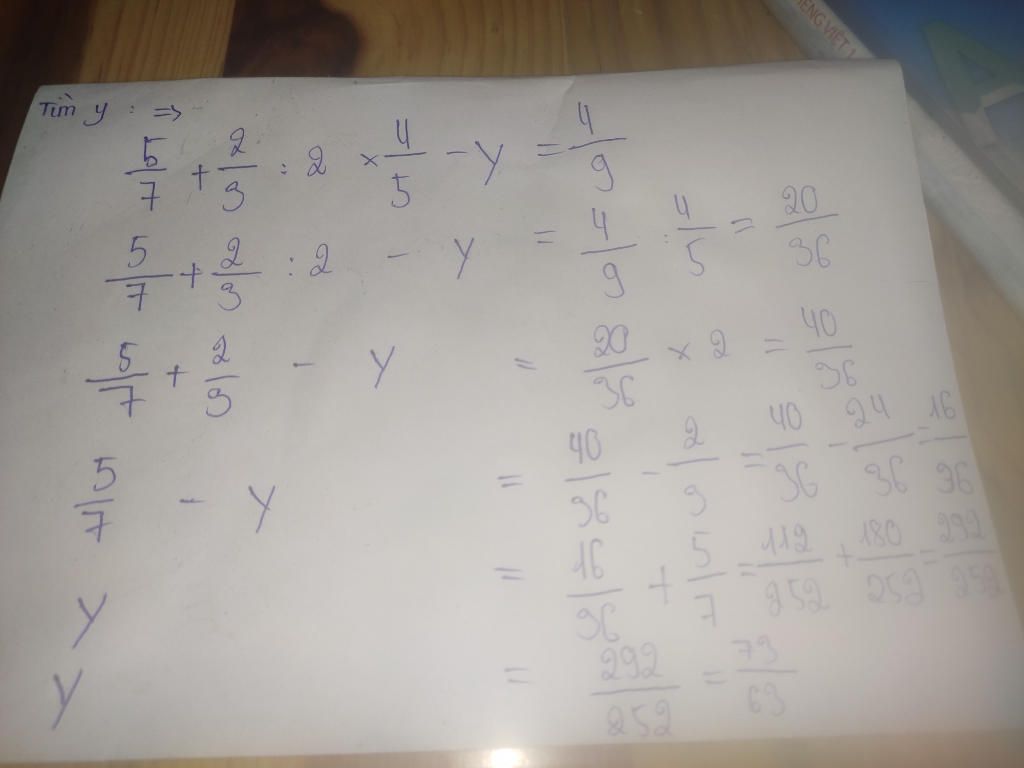 Tìm y : =>
5/7 + 2/3 : 2 × 4/5 - y = 4/9
5/7 + 2/3 : 2 - y = 4/9 : 4/5 = 20/36
5/7 + 2/3 - y = 20/36 × 2 = 40/36
5/7 - y = 40/36 - 2/3 = 40/36 - 24/36 = 16/36
y = 16/36 + 5/7 = 112/252 + 180/252 = 292/252
y = 292/252 = 73/63
TIẾNG VIỆT 1
A